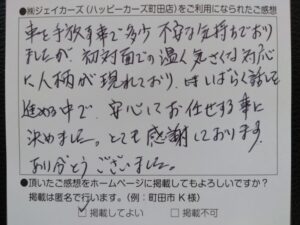 ●㈱ジェイカーズ(ハッピーカーズ町田店)をご利用になられたご感想
車を手放す事で多少不安な気持ちでおり
ましたが、初対面での温く気さくな対応
に人柄が現れており、しばらく話を
進める中で、安心してお任せする事に
決めました。とても感謝しております。
ありがとうございました。
●頂いたご感想をホームページに掲載してもよろしいですか?
掲載は匿名で行います。(例:町田市 K 様)
☑掲載してよい □掲載不可